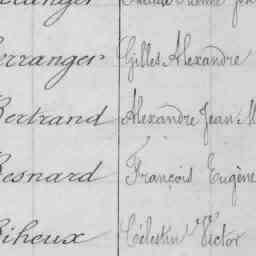 Gilles Alexandre
Bertrand Alexandre Jean M
Besnard François Eugène
Biheux Célestin Victor